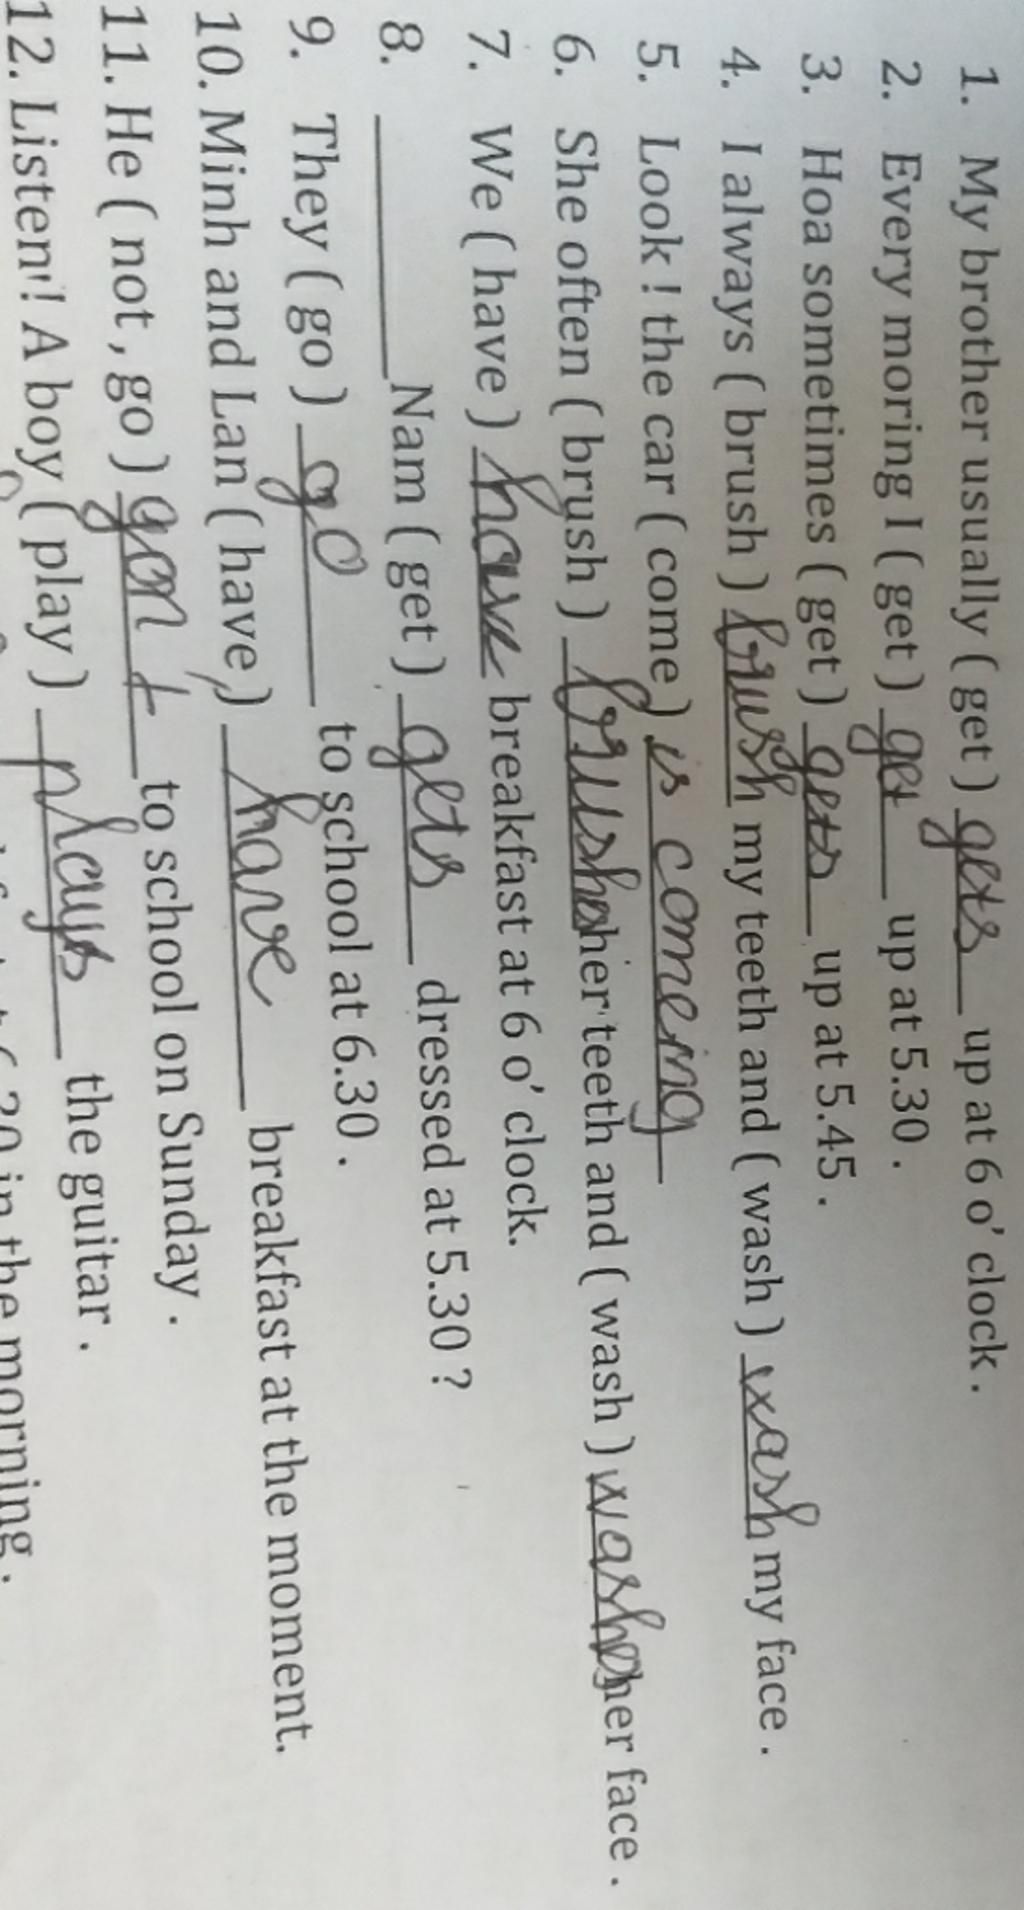 1. My brother usually ( get ) gets up at 6 o' clock .
2. Every moring I ( get ) get up at 5.30 .
3. Hoa sometimes ( get ) gets up at 5.45 .
4. I always ( brush ) brush my teeth and ( wash ) wash my face .
5. Look ! the car ( come ) is comeing
6. She often ( brush ) brushes her teeth and ( wash ) washes her face .
7. We ( have ) have breakfast at 6 o' clock.
8. ________ Nam ( get ) gets dressed at 5.30 ?
9. They ( go ) go to school at 6.30 .
10. Minh and Lan ( have ) have breakfast at the moment.
11. He ( not , go ) to school on Sunday .
12. Listen! A boy ( play ) plays the guitar .
in the morning .